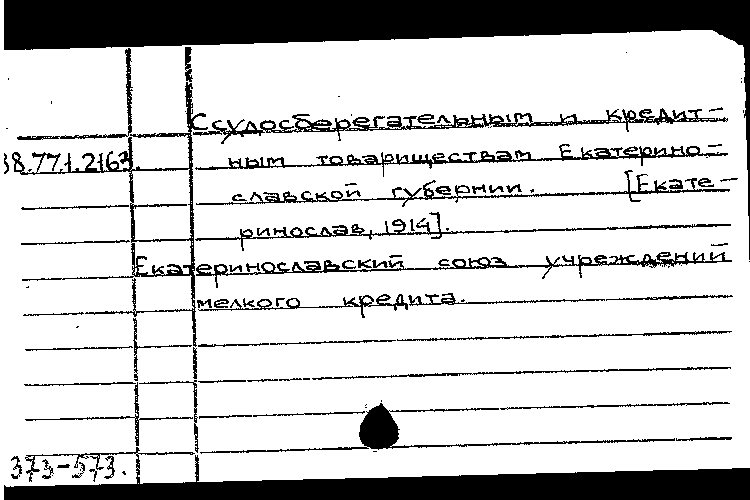 Ссудосберегательным и кредит-
38.77.1.2163. ным товариществам Екатерино-
славской губернии. [Екате-
ринослав, 1914].
Екатеринославский союз учреждений
мелкого кредита.
373-573.